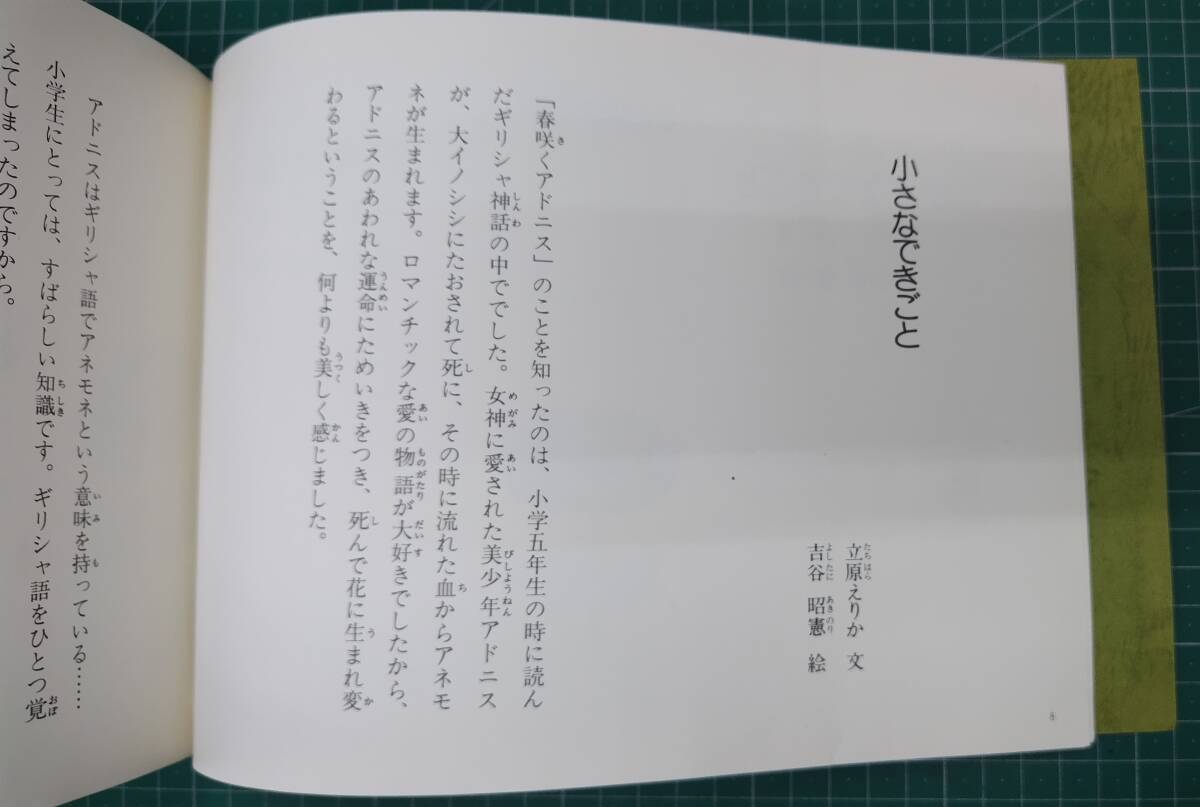 小さなできごと
立原えりか 文
吉谷昭憲 絵
「春咲くアドニス」のことを知ったのは、小学五年生の時に読ん
だギリシャ神話の中ででした。女神に愛された美少年アドニス
が、大イノシシにたおされて死に、その時に流れた血からアネモ
ネが生まれます。ロマンチックな愛の物語が大好きでしたから、
アドニスのあわれな運命にためいきをつき、死んで花に生まれ変
わるということを、何よりも美しく感じました。
8
アドニスはギリシャ語でアネモネという意味を持っている……
小学生にとっては、すばらしい知識です。ギリシャ語をひとつ覚
えてしまったのですから。